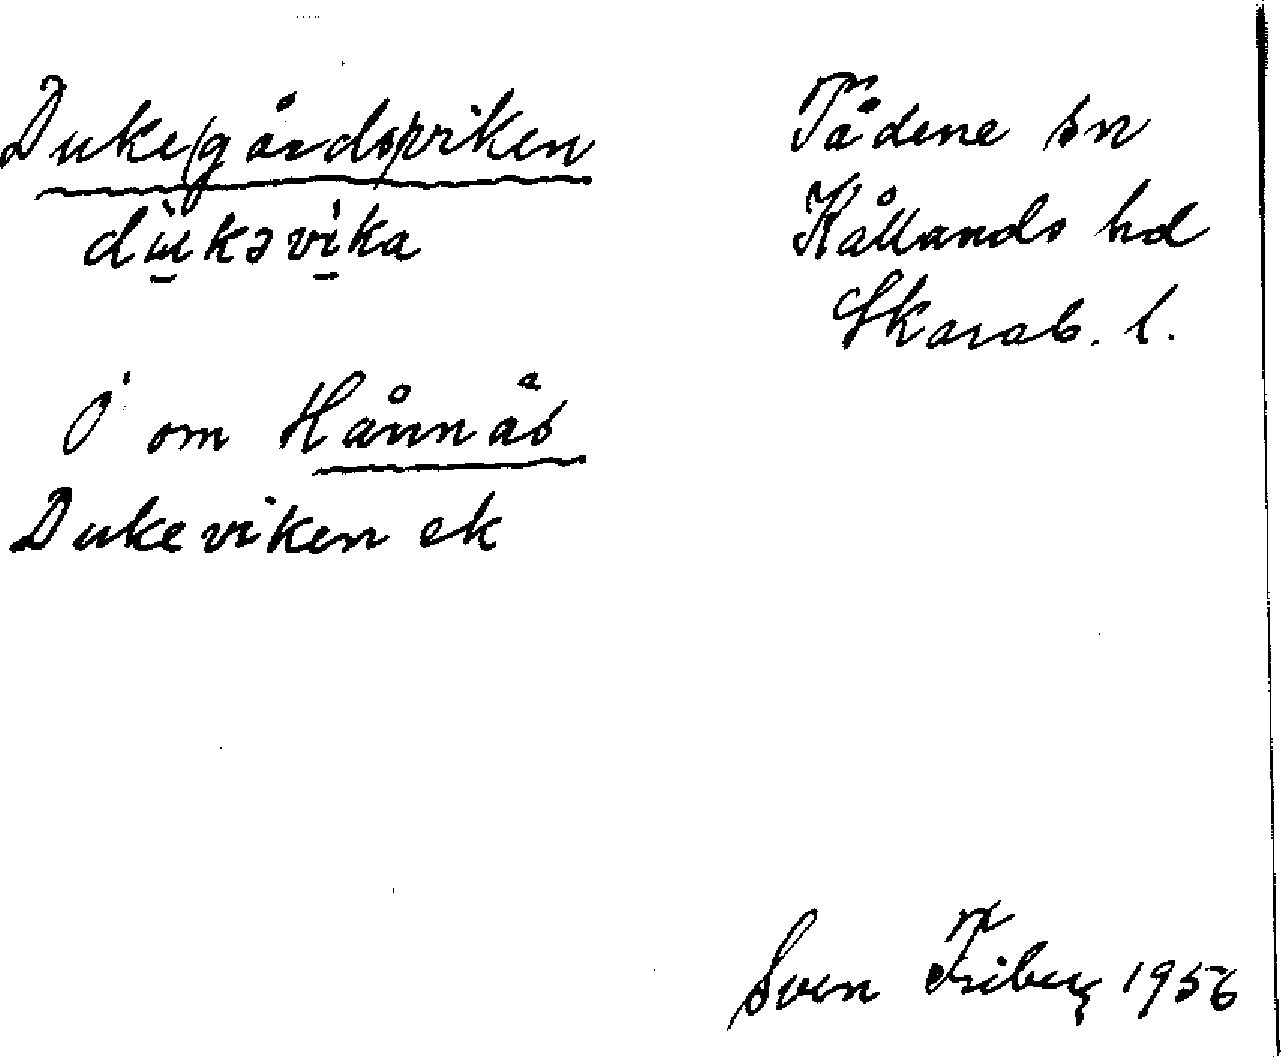 Duke(gårds)viken
dùkəvìka
Ö om Hånnäs
Dukeviken ek
Tådene sn
Kållands hd
Skarab. l.
Sven Friberg 1956